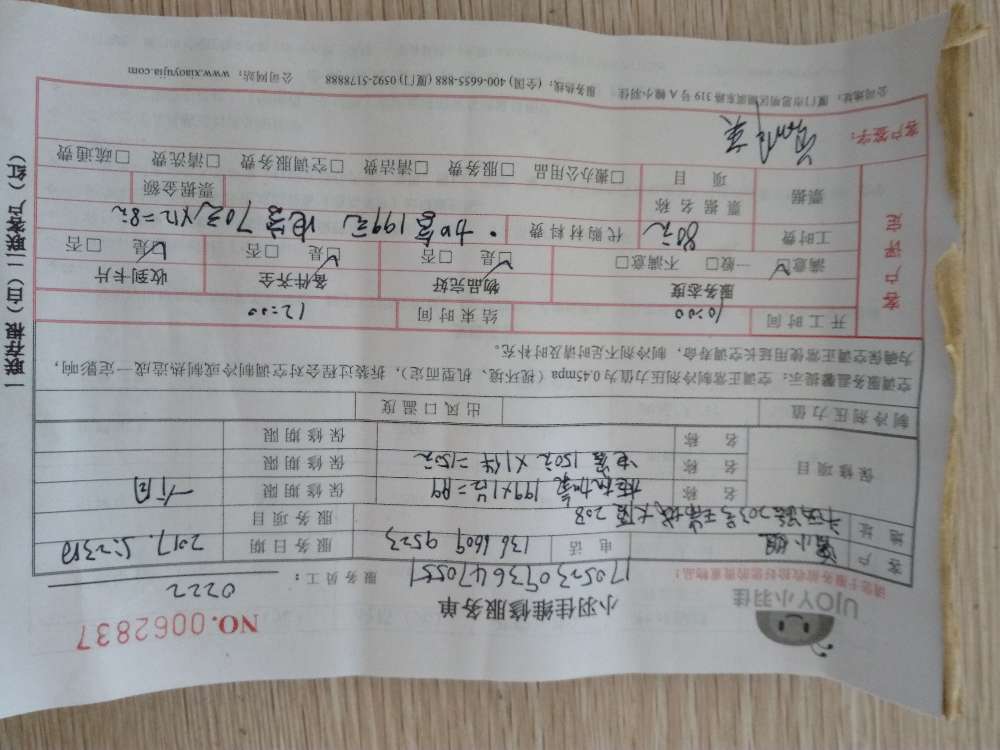 UJOY小羽佳
NO.0062837
小羽佳维修服务单
0222
请您于服务前收拾好您的贵重物品!
服务员工:
客户
电话
136 6609 9523
服务日期
2017.5.23日
地址
203号
大厦208
服务项目
保修项目
名称
柜机加氟 199×1次=199
保修期限
一个月
名称
电容 150元×1件=150元
保修期限
名称
保修期限
制冷剂压力值
出风口温度
空调服务温馨提示:空调正常制冷剂压力值为0.45mpa(视环境、机型而定),拆装过程会对空调制冷或制热造成一定影响,
为确保空调正常使用延长空调寿命,制冷剂不足时请及时补充。
客户评定
开工时间
10:00
结束时间
12:00
服务态度
物品完好
备件齐全
收到卡片
满意☑ 一般□ 不满意□
☑是 □否
☑是 □否
☑是 □否
工时费
80元
代购材料费
票据
票据名称
票据金额
项目
□搬办公用品 □服务费 □清洁费 □空调服务费 □清洗费 □疏通费
客户签字:
公司地址:厦门市思明区湖滨东路319号A幢小羽佳
服务热线:(全国) 400-6655-888 (厦门) 0592-5178888
公司网站:www.xiaoyujia.com
一联存根(白)二联客户(红)